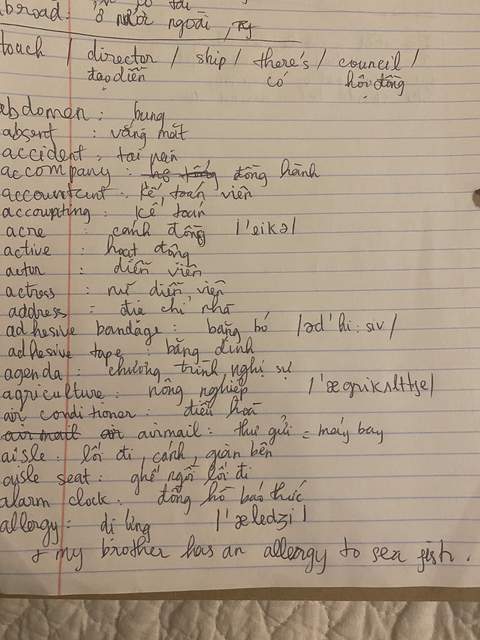 abroad: ở nước ngoài,
touch / director / ship / there's / council /
đạo diễn có hội đồng
abdomen: bụng
absent: vắng mặt
accident: tai nạn
accompany: đồng hành
accountant: kế toán viên
accounting: kế toán
acre: cánh đồng /'eikə/
active: hoạt động
actor: diễn viên
actress: nữ diễn viên
address: địa chỉ nhà
adhesive bandage: băng bó /əd'hi:siv/
adhesive tape: băng dính
agenda: chương trình nghị sự
agriculture: nông nghiệp
air conditioner: điều hoà
air mail air airmail: thư gửi = máy bay
aisle: lối đi, cánh, gian bên
aisle seat: ghế ngồi lối đi
alarm clock: đồng hồ báo thức
allergy: dị ứng /'æledzi/
+ my brother has an allergy to sea fish.